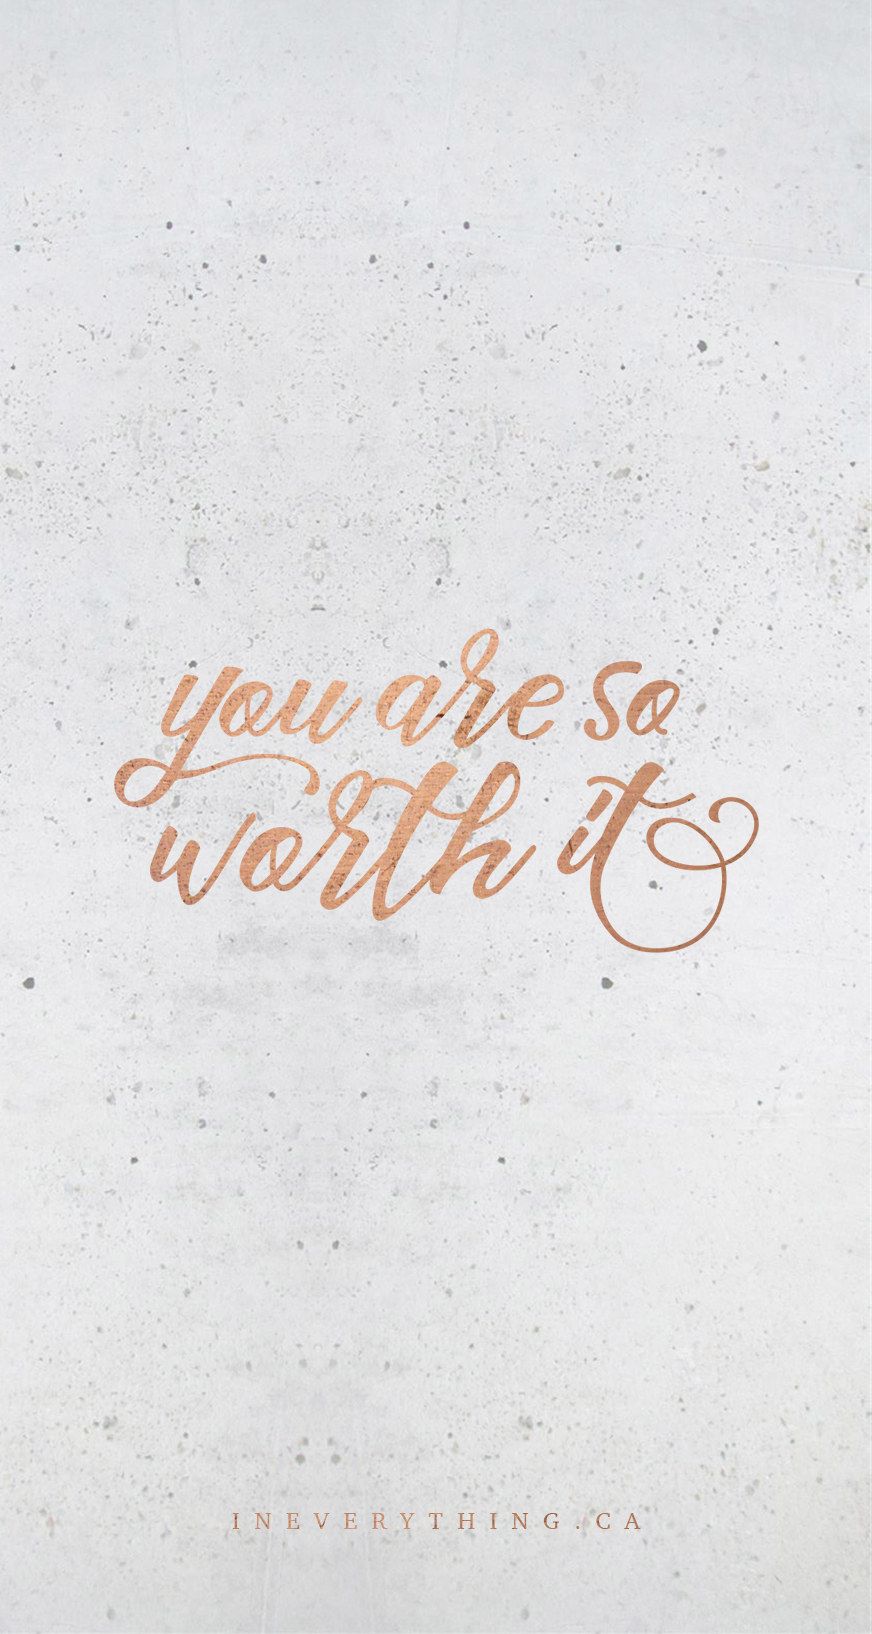 you are so
worth it
INEVERYTHING.CA